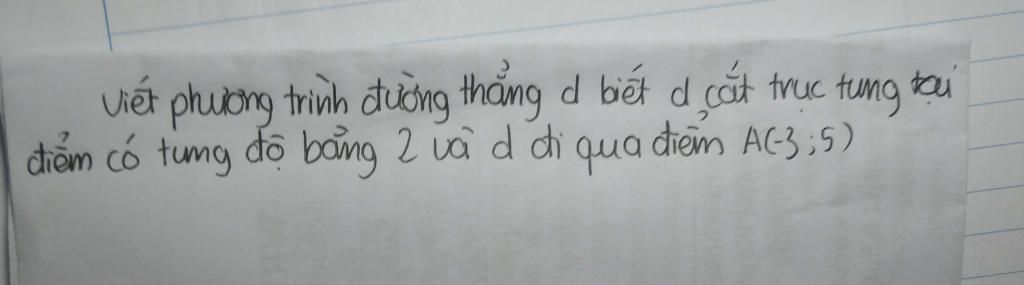 Viết phương trình đường thẳng d biết d cắt trục tung tại
điểm có tung độ bằng 2 và d đi qua điểm A(-3;5)